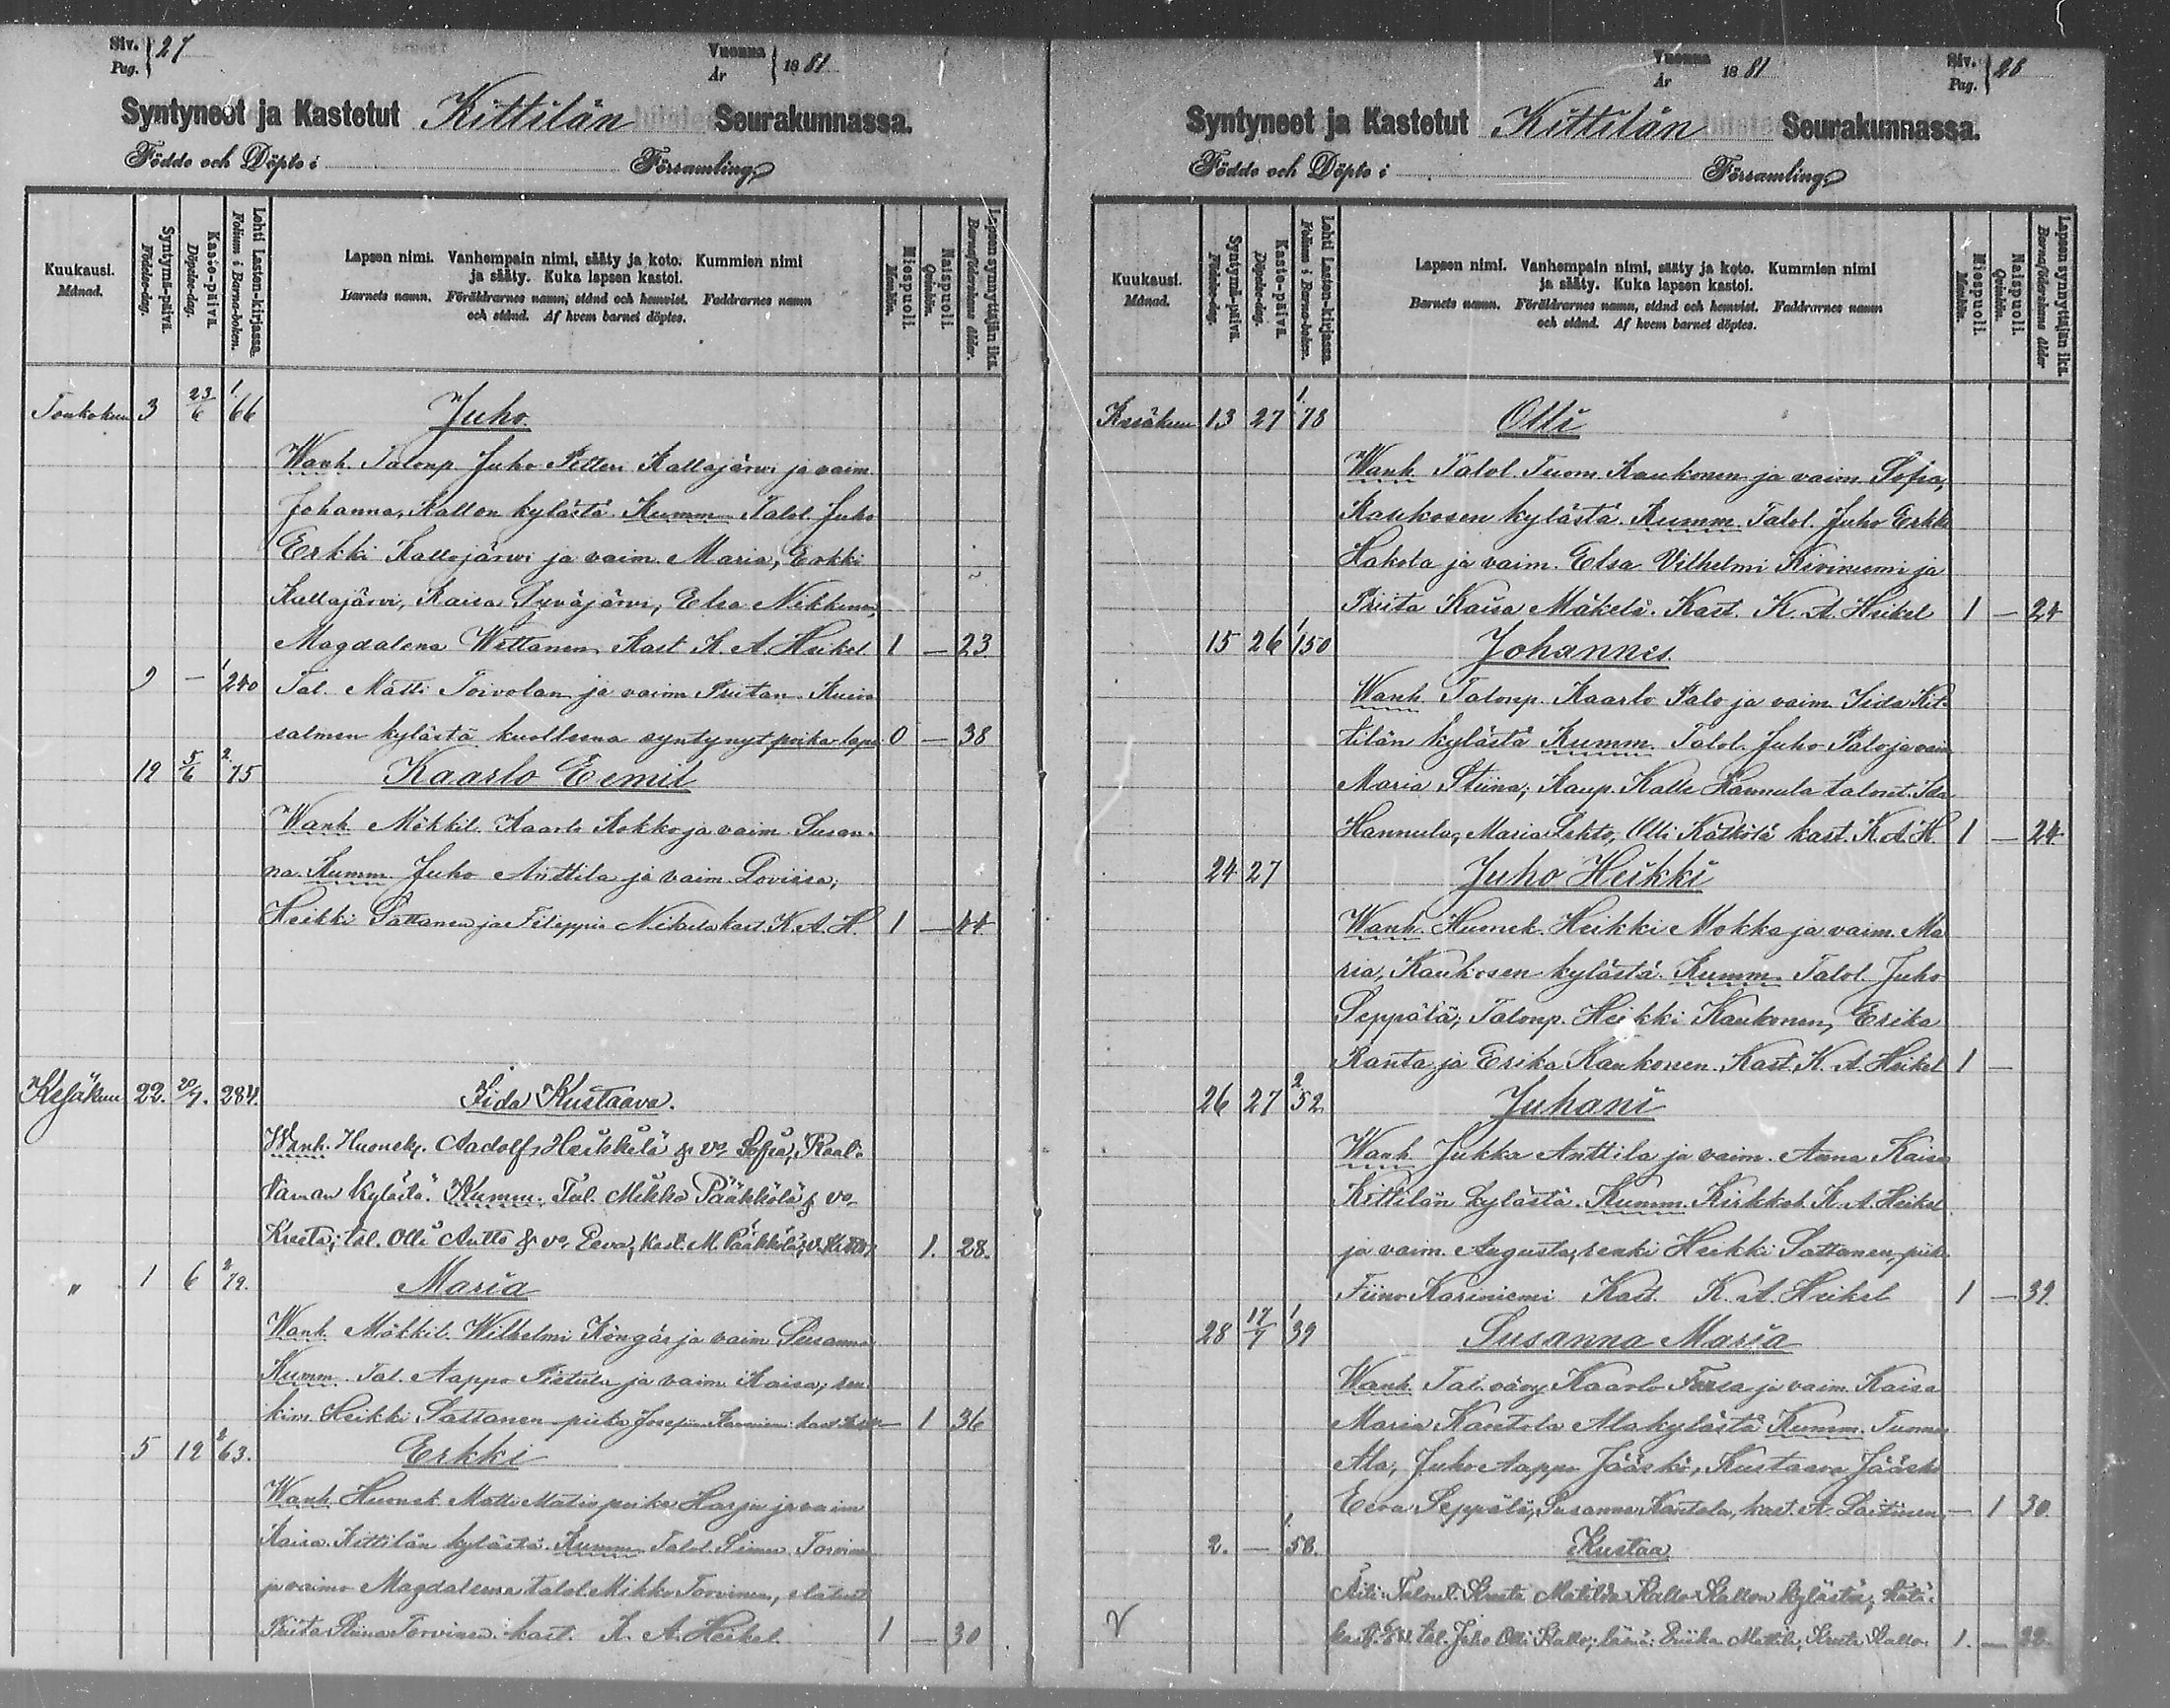 Siv. 27
Pag.
Vuonna 1881
År
Syntyneet ja Kastetut Kittilän Seurakunnassa.
Födde och Döpte i Församling,
Kuukausi.
Månad.
Syntymä-päivä.
Födelse-dag.
Kaste-päivä.
Döpelse-dag.
Lehti Lasten-kirjassa.
Folium i Barna-boken.
Lapsen nimi. Vanhempain nimi, sääty ja koto. Kummien nimi
ja sääty. Kuka lapsen kastoi.
Barnets namn. Föräldrarnes namn, stånd och hemvist. Faddrarnes namn
och stånd. Af hvem barnet döptes.
Miespuoli.
Mankön.
Naispuoli.
Qvinkön.
Lapsen synnyttäjän ikä.
Barnaföderskans ålder.
Toukokuu 3 23/6 1/66 Juho
Wanh. Talonp. Juho Petteri Kallojärwi ja vaim.
Johanna, Kallon kylästä. Kumm. Talol. Juho
Erkki Kallojärwi ja vaim. Maria, Erkki
Kallojärvi, Kaisa Pyväjärvi, Elsa Nikkinen,
Magdalena Wettanen Kast. K. A. Heikel 1 — 23
9 — 1/240 Tal. Matti Toivolan ja vaim. Priitan
salmen kylästä kuolleena syntynyt poika lapsi 0 — 38
19 5/6 2/75 Kaarlo Eemil
Wanh. Mökkil. Kaarlo Kokko ja vaim. Susan-
na. Kumm. Juho Anttila ja vaim. Loviisa,
Heikki Sattanen ja Filippus kast. K. A. H. 1 — 44
Kesäkuu 22. 20/7. 284. Iida Kustaava.
Wanh. Huonek. Aadolf Heikkilä & vo Sofia, Raat-
tavan kylästä. Kumm. Tal. Mikko Pääkkölä & vo
Kreeta; tal. Olli Autto & vo. Eeva, kast. M. Pääkkölä, 1. 28.
" 1 6 2/79. Maria
Wanh. Mökkil. Wilhelmi Köngäs ja vaim. Susanna
Kumm. Tal. Aappo ja vaim. Kaisa, ren-
kim. Heikki Sattanen piika Josefina — 1 36
5 12 2/63. Erkki
Wanh. Huonek. Matti Matin poika Harju ja vaim
Kaisa. Kittilän kylästä. Kumm. Talol. Simo Torvinen
ja vaimo Magdaleena talol. Mikko Torvinen,
Priita Stiina Torvinen. kast. K. A. Heikel. 1 — 30
Vuonna 1881
År
Siv. 28
Pag.
Syntyneet ja Kastetut Kittilän Seurakunnassa.
Födde och Döpte i Församling,
Kuukausi.
Månad.
Syntymä-päivä.
Födelse-dag.
Kaste-päivä.
Döpelse-dag.
Lehti Lasten-kirjassa.
Folium i Barna-boken.
Lapsen nimi. Vanhempain nimi, sääty ja koto. Kummien nimi
ja sääty. Kuka lapsen kastoi.
Barnets namn. Föräldrarnes namn, stånd och hemvist. Faddrarnes namn
och stånd. Af hvem barnet döptes.
Miespuoli.
Mankön.
Naispuoli.
Qvinkön.
Lapsen synnyttäjän ikä.
Barnaföderskans ålder
Kesäkuu 13 27 1/78 Olli
Wanh. Talol. Tuom. Kaukonen ja vaim. Sofia,
Kaukosen kylästä. Kumm. Talol. Juho Erkki
Hakola ja vaim. Elsa Vilhelmi Kiviniemi ja
Priita Kaisa Mäkelä. Kast. K. A. Heikel 1 — 24
15 26 1/150 Johannes.
Wanh. Talonp. Kaarlo Palo ja vaim. Iida Kit-
tilän kylästä Kumm. Talol. Juho Palo ja vaim
Maria Stiina, Kaup. Kalle Hannula talont. Ida
Hannula, Maria Lehto, Olli Kätkölä kast. K. A. H. 1 — 24.
24 27 Juho Heikki
Wanh. Huonek. Heikki Mokko ja vaim. Ma
ria, Kaukosen kylästä. Kumm. Talol. Juho
Seppälä, Talonp. Heikki Kaukonen, Erika
Ranta ja Erika Kaukonen. Kast. K. A. Heikel 1 —
26 27 2/52. Juhani
Wanh. Jukka Anttila ja vaim. Anna Kaisa
Kittilän kylästä. Kumm. Kirkkoh. K. A. Heikel
ja vaim. Augusta, renki Heikki Sattanen, piik.
Fiina Kariniemi Kast. K. A. Heikel 1 — 39.
28 17/7 1/39 Susanna Maria
Wanh. Tal. vävy Kaarlo ja vaim. Kaisa
Maria Kantola Alakylästä Kumm. Tuomas
Ala, Juho Aappo Jääskö, Kustaava Jääskö
Eeva Seppälä, Susanna Kantola, kast. A. Laitinen, — 1 30.
2. — 1/58. Kustaa
Äiti: Talont. Kreeta Matilda Kallo Kallon kylästä,
tal. Juho Olli Kallo; Priika Mattila, Kreeta Kallo. 1. — 22.